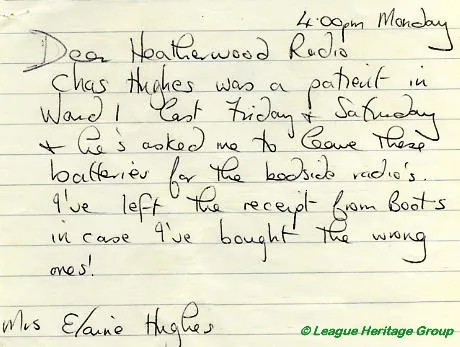 4:00pm Monday
Dear Heatherwood Radio
Chas Hughes was a patient in
Ward 1 last Friday & Saturday
& he's asked me to leave these
batteries for the bedside radio's.
I've left the receipt from Boots
in case I've bought the wrong
ones!
Mrs Elaine Hughes
© League Heritage Group